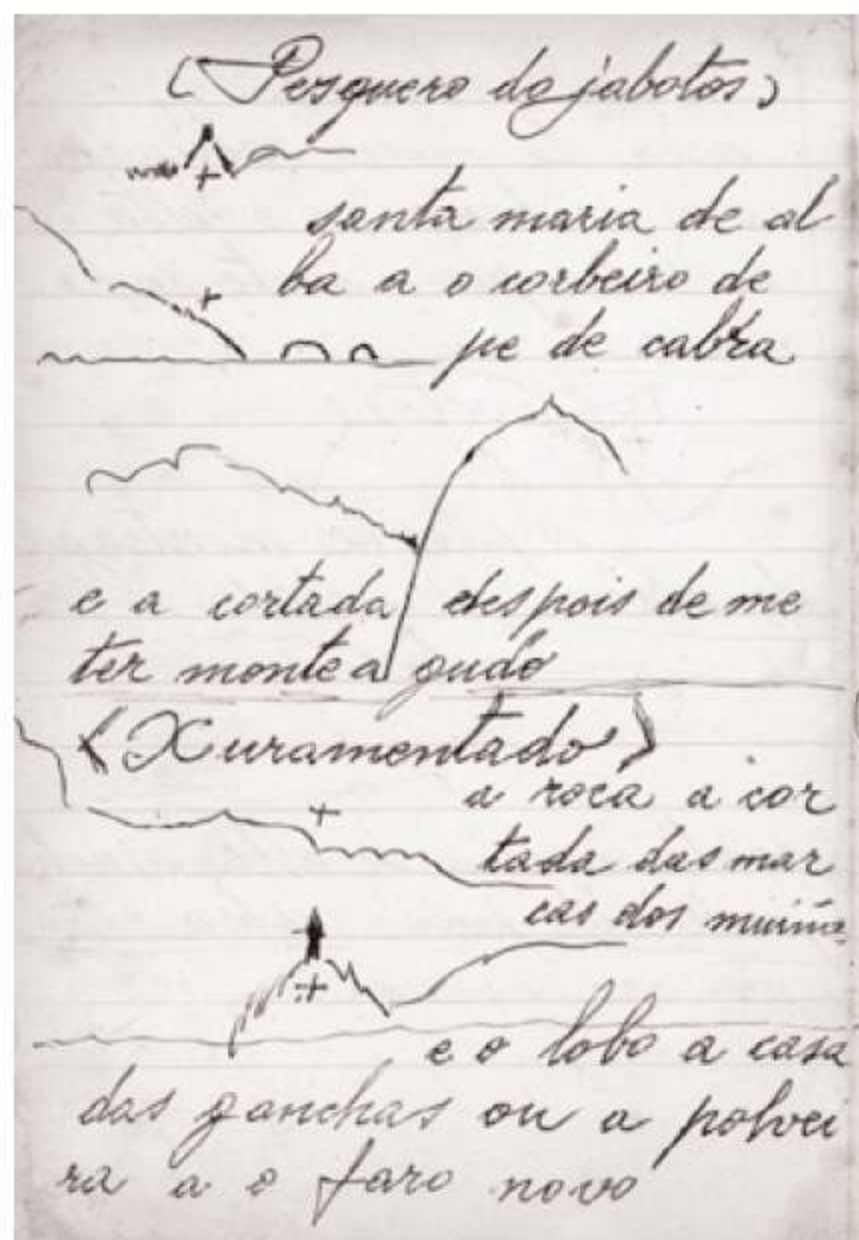 (Pesquero do jabotos)
santa maria de al
ba a o corbeiro de
pe de cabra
e a cortada despois de me
ter monte a gudo
(Xuramentado)
a roca a cor
tada das mar
cas dos
e o lobo a casa
das ganchas ou a polvei
ra a o faro novo